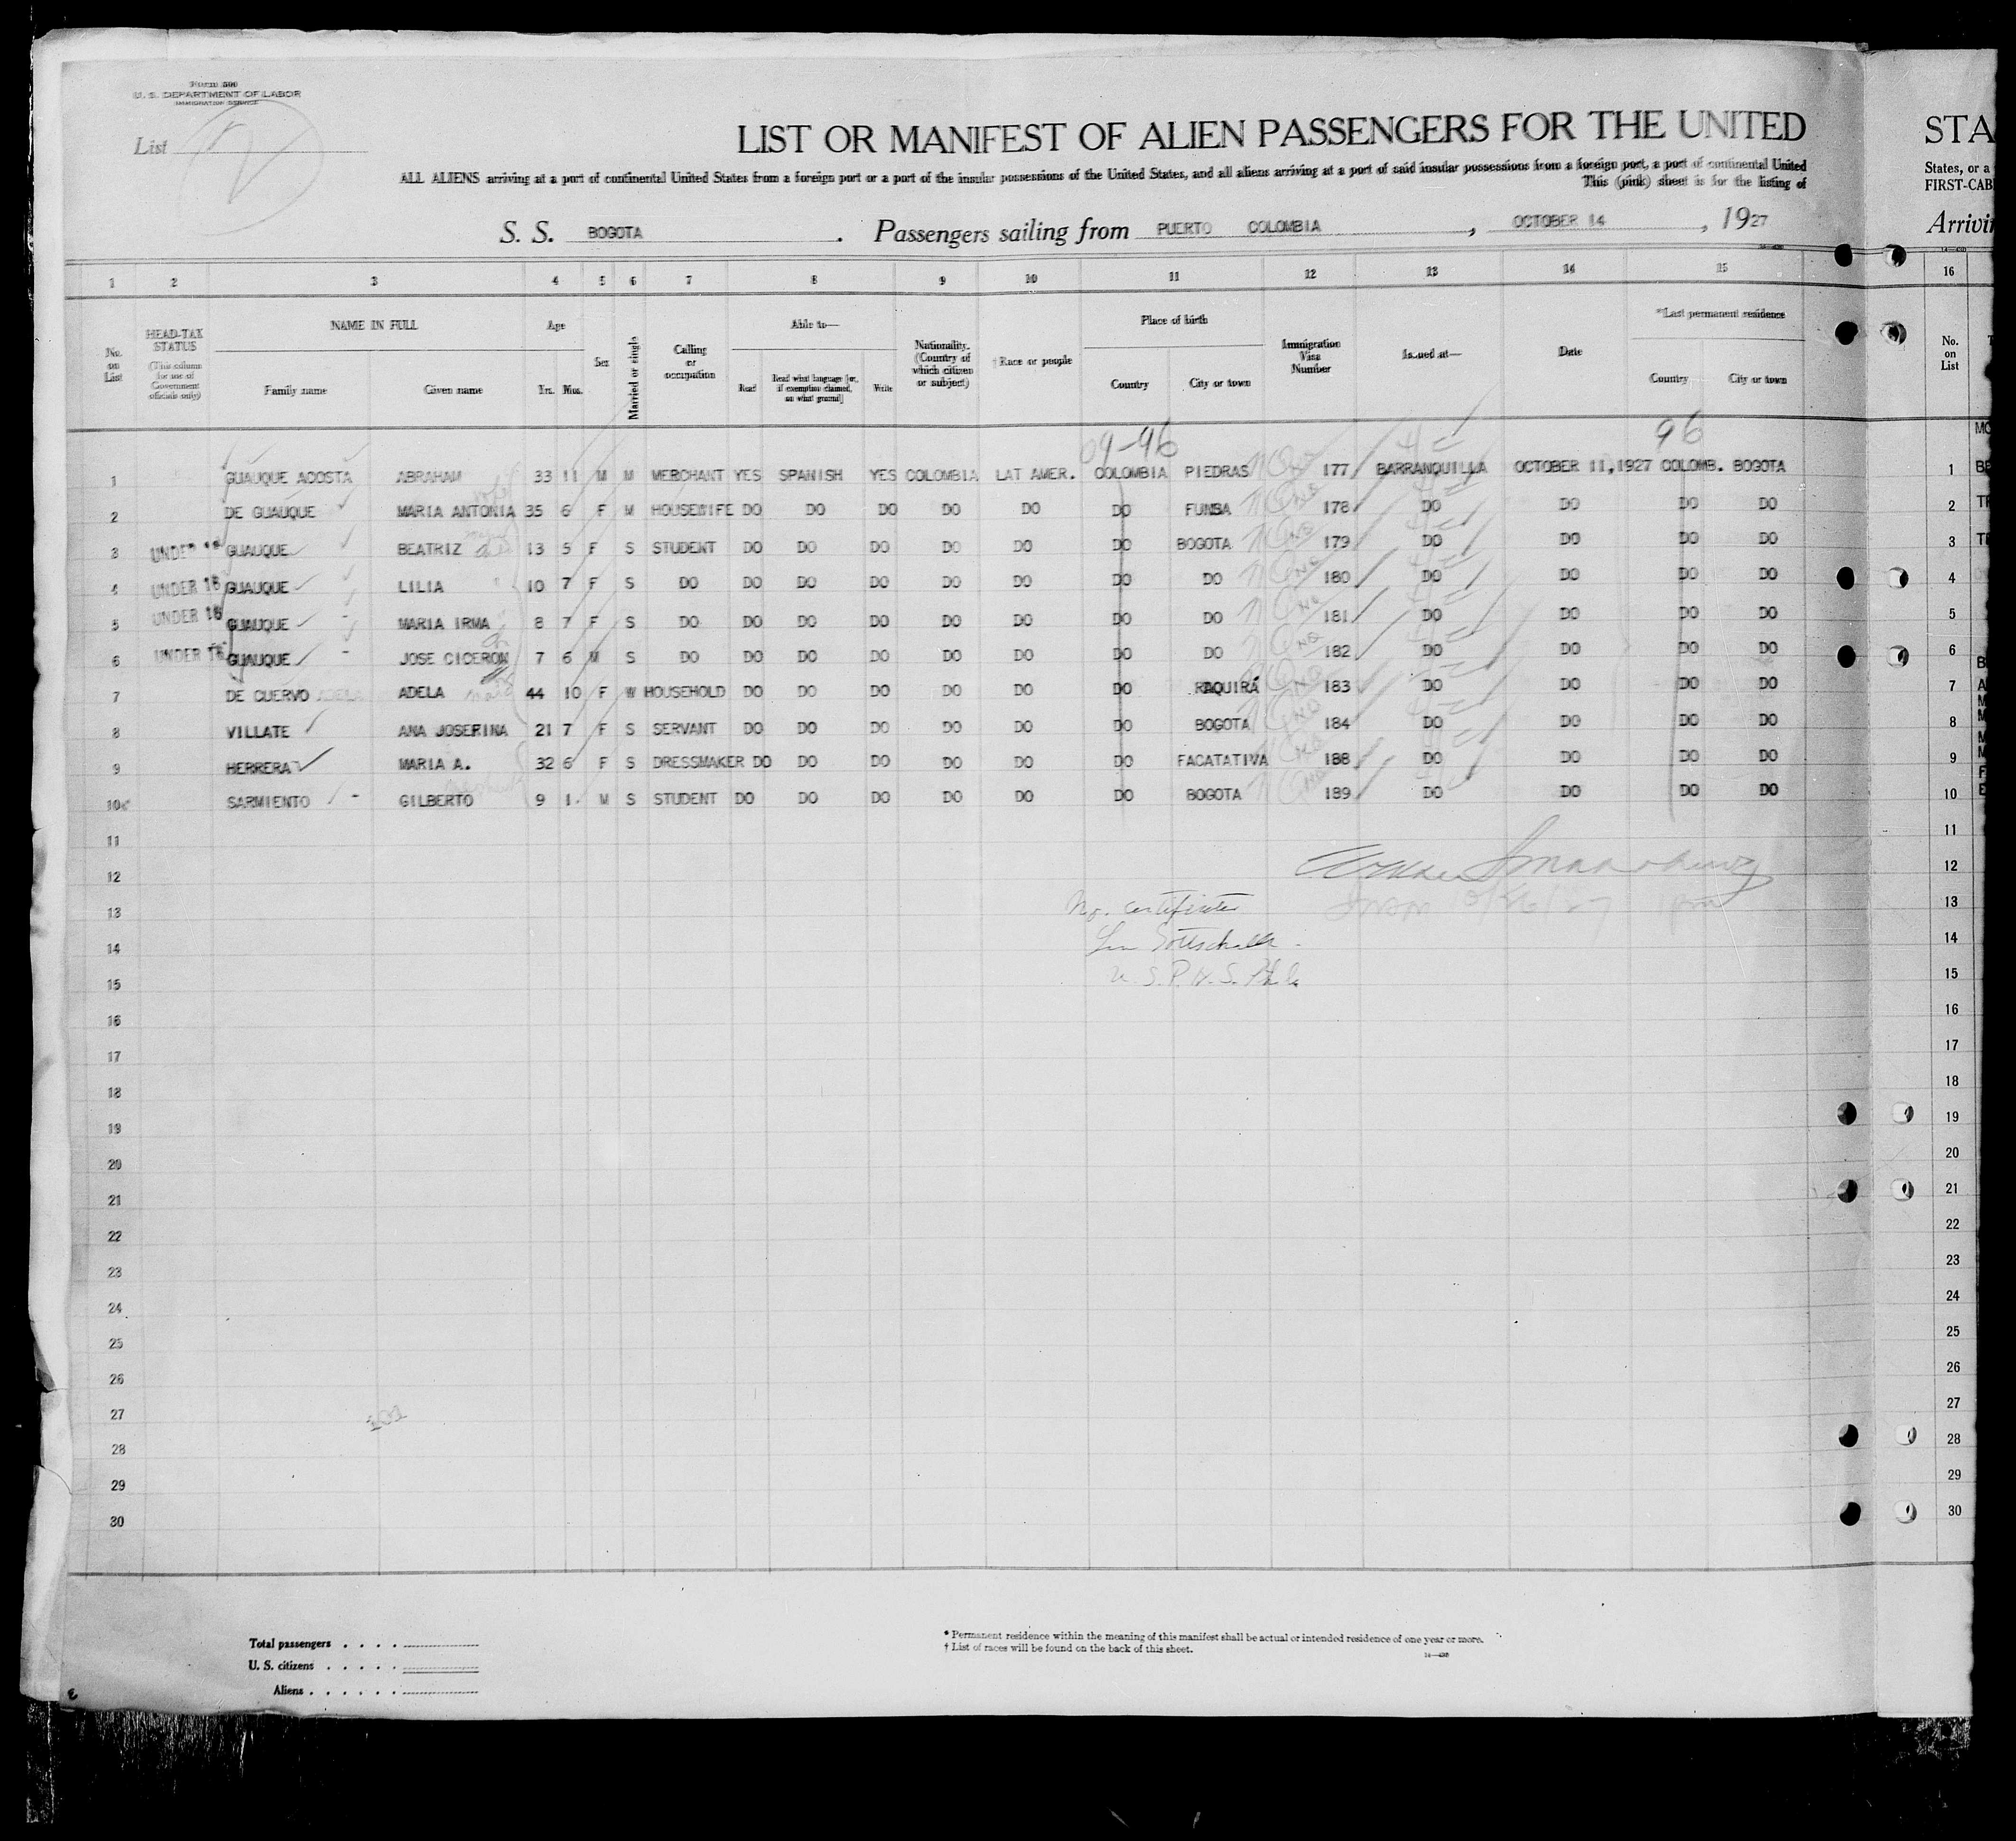 Form 500
U. S. DEPARTMENT OF LABOR
IMMIGRATION SERVICE
List
LIST OR MANIFEST OF ALIEN PASSENGERS FOR THE UNITED
STA
ALL ALIENS arriving at a port of continental United States from a foreign port or a port of the insular possessions of the United States, and all aliens arriving at a port of said insular possessions from a foreign port, a port of continental United
States, or a
This (pink) sheet is for the listing of
FIRST-CAB
S. S. BOGOTA. Passengers sailing from PUERTO COLOMBIA, OCTOBER 14, 1927
Arrivin
1 2 3 4 5 6 7 8 9 10 11 12 13 14 15 16
HEAD-TAX STATUS (This column for use of Government officials only)
NAME IN FULL Age Able to— Place of birth *Last permanent residence
No. on List Family name Given name Yrs. Mos. Sex Married or single Calling or occupation Read Read what language [or, if exemption claimed, on what ground] Write Nationality. (Country of which citizen or subject) †Race or people Country City or town Immigration Visa Number Issued at— Date Country City or town No. on List
09-96 96
1 GUAUQUE ACOSTA ABRAHAM 33 11 M M MERCHANT YES SPANISH YES COLOMBIA LAT AMER. COLOMBIA PIEDRAS 177 BARRANQUILLA OCTOBER 11,1927 COLOMB. BOGOTA 1
2 DE GUAUQUE MARIA ANTONIA 35 6 F M HOUSEWIFE DO DO DO DO DO DO FUNSA 178 DO DO DO DO 2
3 UNDER 16 GUAUQUE BEATRIZ 13 5 F S STUDENT DO DO DO DO DO DO BOGOTA 179 DO DO DO DO 3
4 UNDER 16 GUAUQUE LILIA 10 7 F S DO DO DO DO DO DO DO DO 180 DO DO DO DO 4
5 UNDER 16 GUAUQUE MARIA IRMA 8 7 F S DO DO DO DO DO DO DO DO 181 DO DO DO DO 5
6 UNDER 16 GUAUQUE JOSE CICERON 7 6 M S DO DO DO DO DO DO DO DO 182 DO DO DO DO 6
7 DE CUERVO ADELA 44 10 F W HOUSEHOLD DO DO DO DO DO DO RAQUIRA 183 DO DO DO DO 7
8 VILLATE ANA JOSEFINA 21 7 F S SERVANT DO DO DO DO DO DO BOGOTA 184 DO DO DO DO 8
9 HERRERA MARIA A. 32 6 F S DRESSMAKER DO DO DO DO DO DO FACATATIVA 188 DO DO DO DO 9
10 SARMIENTO GILBERTO 9 1 M S STUDENT DO DO DO DO DO DO BOGOTA 189 DO DO DO DO 10
11 11
12 12
13 No. certificates 13
14 14
15 U. S. P. H. S. 15
16 16
17 17
18 18
19 19
20 20
21 21
22 22
23 23
24 24
25 25
26 26
27 27
28 28
29 29
30 30
Total passengers . . . .
U. S. citizens . . . . .
Aliens . . . . . .
* Permanent residence within the meaning of this manifest shall be actual or intended residence of one year or more.
† List of races will be found on the back of this sheet.